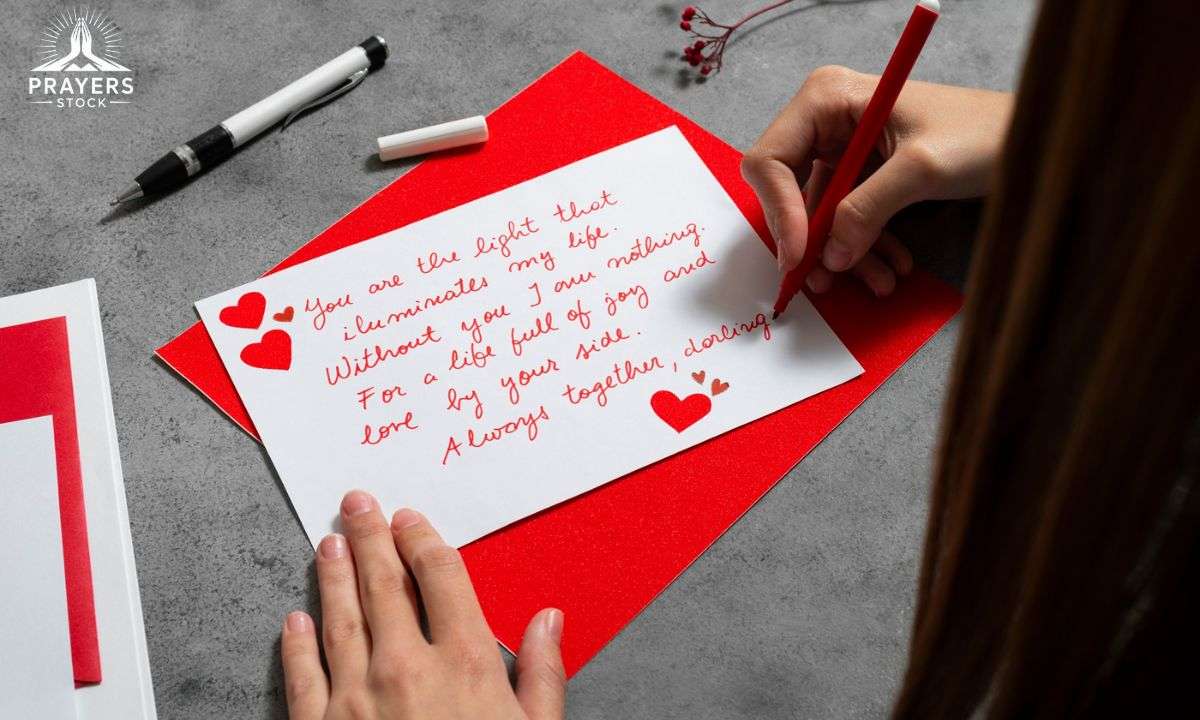 PRAYERS
STOCK
You are the light that
iluminates my life.
Without you I am nothing.
For a life full of joy and
love by your side.
Always together, darling